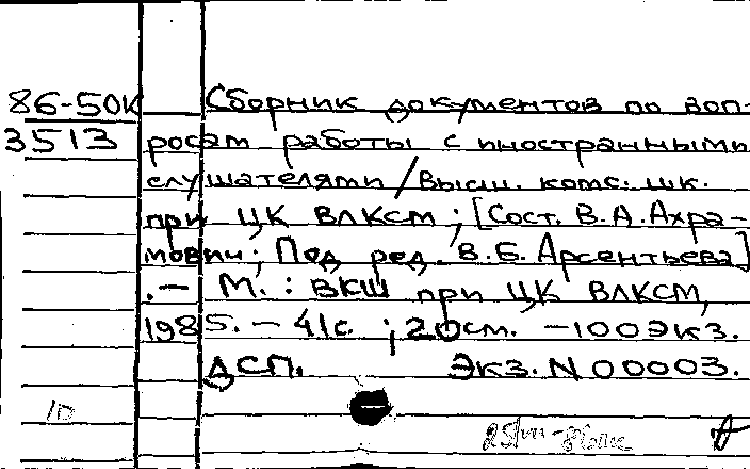 86-50К Сборник документов по воп-
3513 росам работы с иностранными
слушателями / Высш. комс. шк.
при ЦК ВЛКСМ; [Сост. В.А.Ахра-
мович; Под ред. В.Б. Арсентьева]
.- М.: ВКШ при ЦК ВЛКСМ,
1985. - 41с. ; 20см. - 100экз.
ДСП. Экз. N 00003.
10